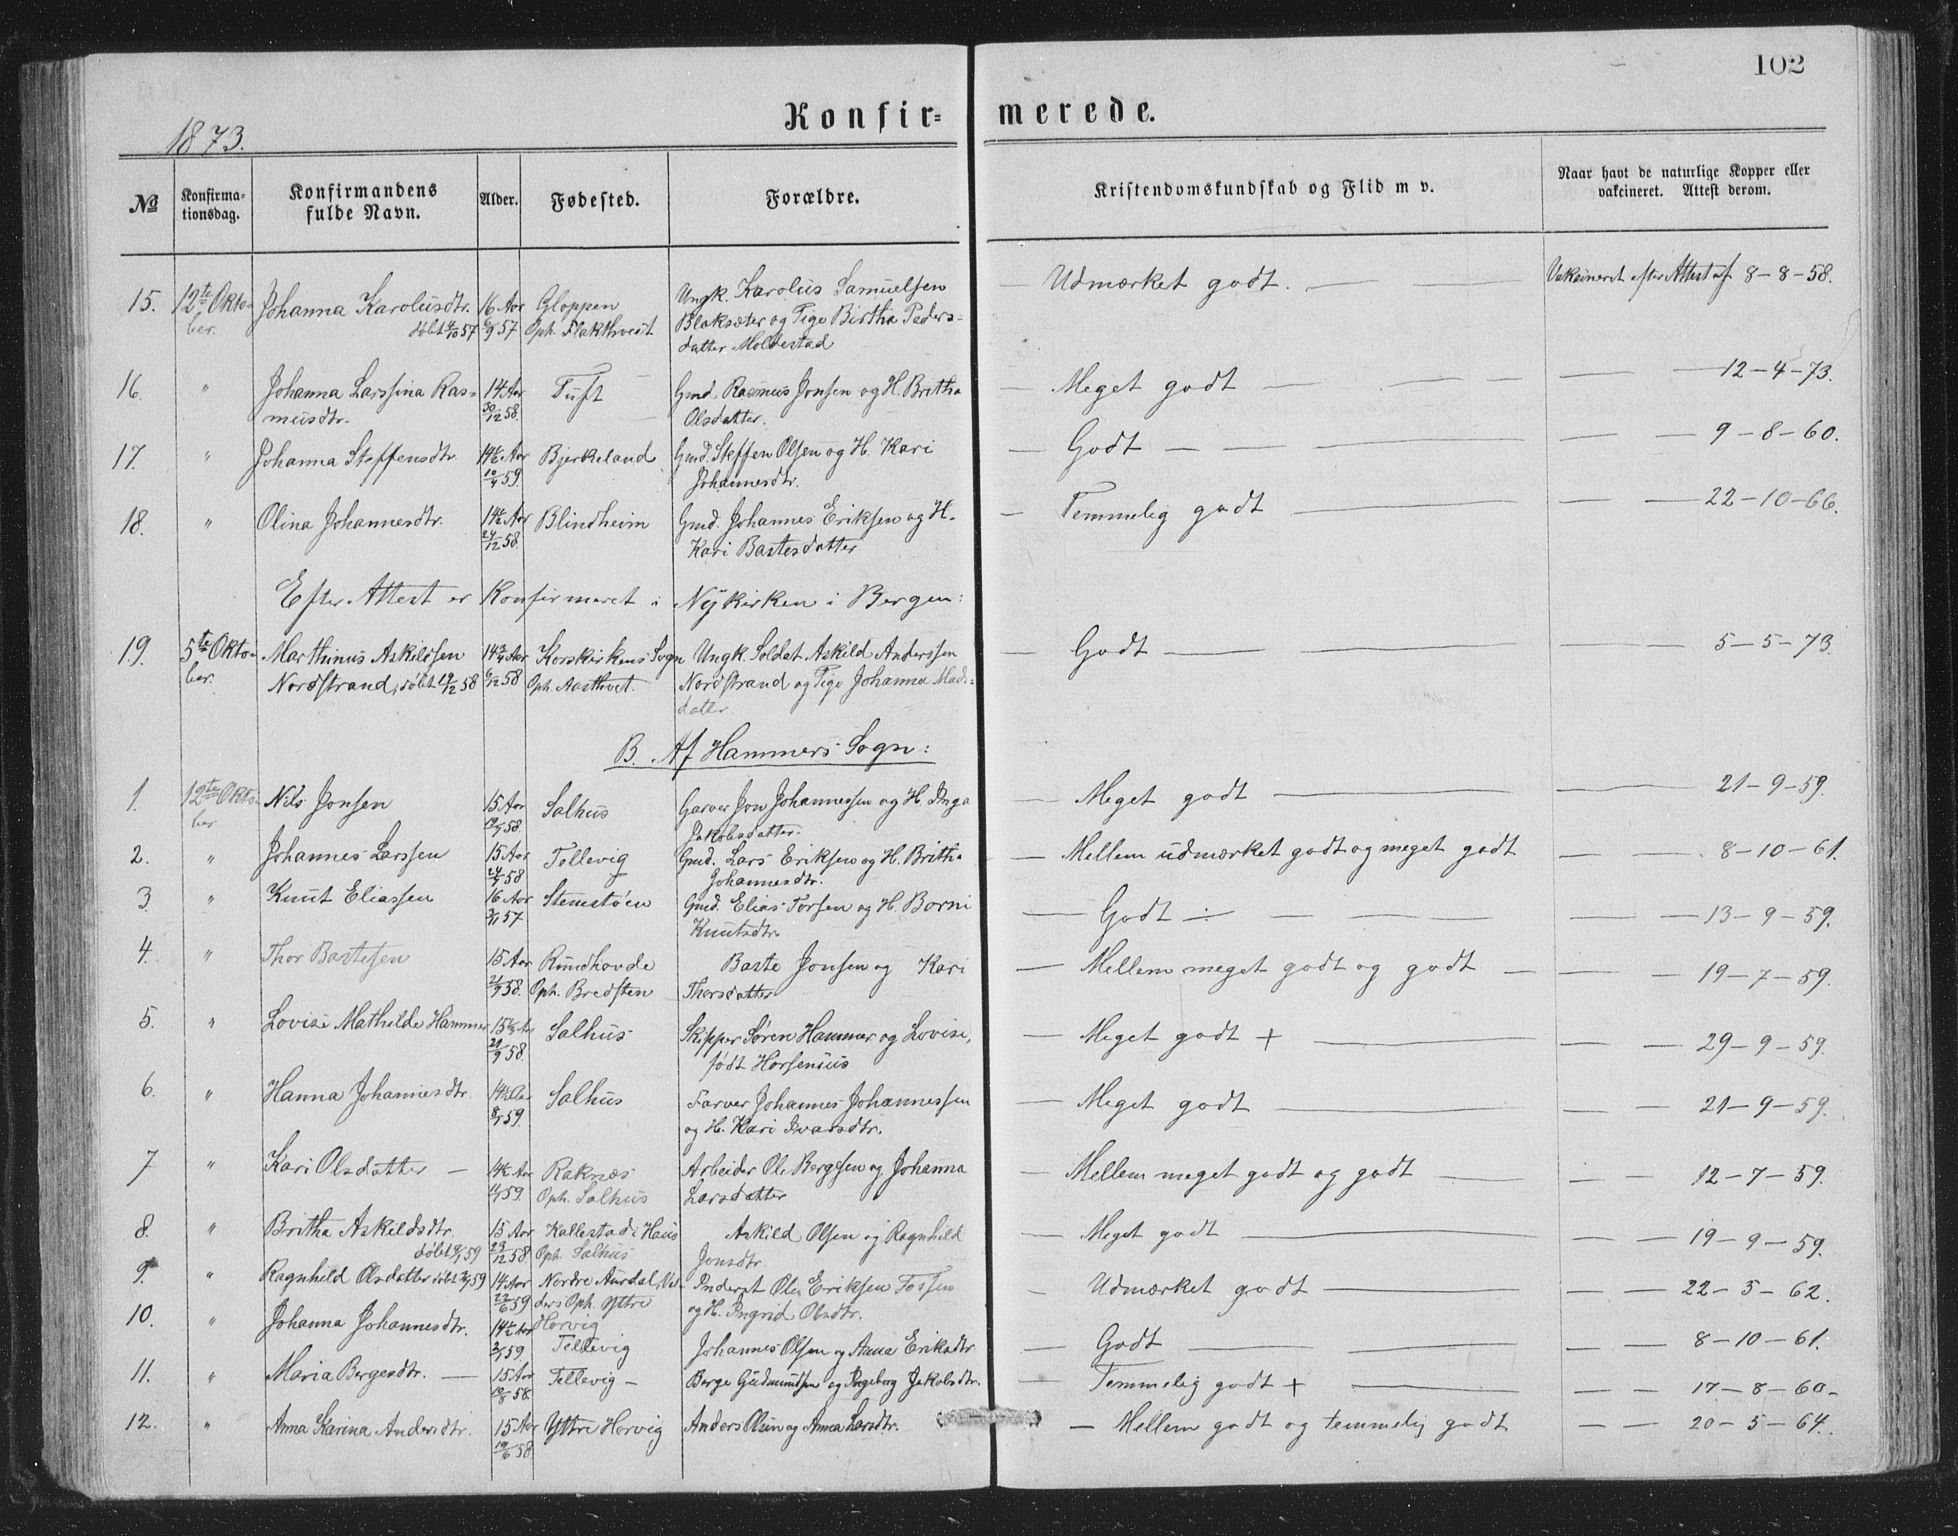 102
Konfirmerede.
1873.
№ Konfirmationsdag. Konfirmandens fulde Navn. Alder. Fødested. Forældre. Kristendomskundskab og Flid m v. Naar havt de naturlige Kopper eller vakcineret. Attest derom.
15. 12te Okto- Johanna Karolusdtr. 16 Aar Gloppen Ungk. Karolus Samuelsen — Udmærket godt. — Vakcineret efter Attest af 8-8-58.
ber. døbt 57 57 Oph. Flakthveit Blaksæter og Pige Birtha Peders-
datter Moldestad
16. " Johanna Larssina Ras- 14 Aar Tuft Gmd. Rasmus Jonsen og H. Britha — Meget godt — 12-4-73.
musdtr. 30/12 58. Olsdatter.
17. " Johanna Steffensdtr 14½ Aar Bjerkeland Gmd. Steffen Olsen og H. Kari — Godt — 9-8-60.
59. Johannesdtr.
18. " Olina Johannesdtr. 14½ Aar Blindheim Gmd. Johannes Eriksen og H. — Temmelig godt — 22-10-66.
58. Kari Bastesdatter
Efter Attest er Konfirmeret i Nykirken i Bergen:
19. 5te Okto- Marthinus Askildsen 14¾ Aar Korskirkens Sogn Ungk. Soldat Askild Anderssen — Godt — 5-5-73.
ber. Nordstrand, døbt 19/12 58 6/12 58 Oph. Aasthvet. Nordstrand og Pige Johanna Mads-
datter
B. Af Hammers Sogn:
1. 12te Okto- Nils Jonsen 15 Aar Salhus Garver Jon Johannessen og H. Inga — Meget godt — 21-9-59.
ber 58. Jakobsdatter.
2. " Johannes Larssen 15 Aar Tellevig Gmd. Lars Eriksen og H. Britha — Mellem udmærket godt og meget godt — 8-10-61.
58 Johannesdtr.
3. " Knut Eliassen 16 Aar Stenestøen Gmd. Elias Torsen og H. Borni — Godt — 13-9-59.
57 Knutsdtr.
4. " Thor Bastesen 15 Aar Rundhovde Baste Jonsen og Kari — Mellem meget godt og godt — 19-7-59.
58. Oph. Bredsten Thorsdatter
5. " Lovise Mathilde Hammer Salhus Skipper Søren Hammer og Lovise, — Meget godt + — 29-9-59.
58. født Horsenius
6. " Hanna Johannesdtr. Salhus Farver Johannes Johannessen — Meget godt — 21-9-59.
59. og H. Kari Ivarsdtr.
7 " Kari Olsdatter — 14½ Aar Raknæs Arbeider Ole Bergesen og Johanna — Mellem meget godt og godt — 12-7-59.
59. Oph. Salhus Larsdatter
8. " Britha Askildsdtr. 15 Aar Kallestad i Haus Askild Olsen og Ragnhild — Meget godt — 19-9-59.
døbt 59 58 Oph. Salhus Jonsdtr.
9. " Ragnhild Olsdatter døbt 59 14 Aar Nordre Aurdal, Val- Inderst Ole Eriksen Fossen — Udmærket godt — 22-5-62.
59 ders Oph. Yttre og H. Ingrid Olsdtr.
10. " Johanna Johannesdtr. 14½ Aar Horvig
59. Tellevig Johannes Olsen og Anna Eriksdtr — Godt — 8-10-61.
11. " Maria Bergesdtr. — 15 Aar Tellevig — Berge Gudmundsen og Ingeborg Jakobsdtr. — Temmelig godt + — 17-8-60-
58.
12. " Anna Karina Andersdtr. 15 Aar Yttre Horvig Anders Olsen og Anna Larsdtr. — Mellem godt og temmelig godt — 20-5-64.
58.